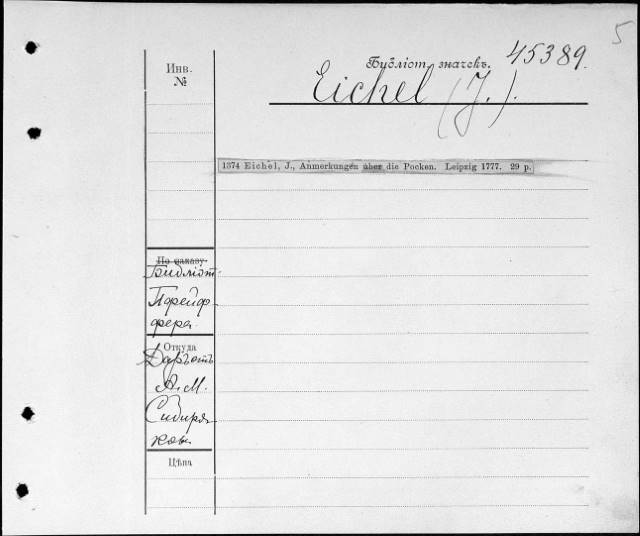 5
Библіот. значекъ. 45389.
Eichel (J.).
Инв.
№
1374 Eichel, J., Anmerkungen über die Pocken. Leipzig 1777. 29 p.
По заказу
Библіот.
Пфейф
фера
Откуда
Даръ отъ
А. М.
Сибиря
кова
Цѣна